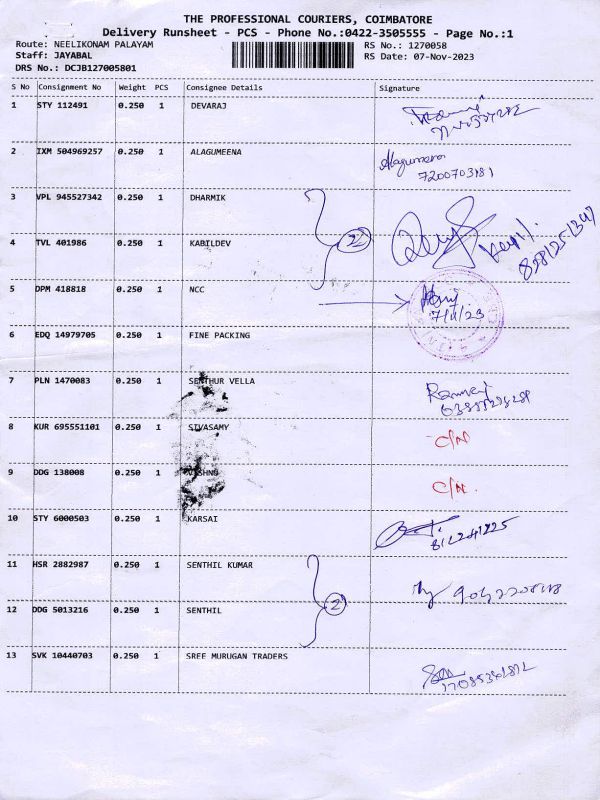 THE PROFESSIONAL COURIERS, COIMBATORE
Delivery Runsheet - PCS - Phone No.:0422-3505555 - Page No.:1
Route: NEELIKONAM PALAYAM RS No.: 1270058
Staff: JAYABAL RS Date: 07-Nov-2023
DRS No.: DCJB127005801
S No Consignment No Weight PCS Consignee Details Signature
1 STY 112491 0.250 1 DEVARAJ
2 IXM 504969257 0.250 1 ALAGUMEENA Alagumeena
7200703181
3 VPL 945527342 0.250 1 DHARMIK
2
4 TVL 401986 0.250 1 KABILDEV
5 DPM 418818 0.250 1 NCC
7/11/23
6 EDQ 14979705 0.250 1 FINE PACKING
7 PLN 1470083 0.250 1 SENTHUR VELLA
8 KUR 695551101 0.250 1 SIVASAMY C/N
9 DDG 138008 0.250 1 VISHNU C/N.
10 STY 6000503 0.250 1 KARSAI
11 HSR 2882987 0.250 1 SENTHIL KUMAR
2
12 DDG 5013216 0.250 1 SENTHIL
13 SVK 10440703 0.250 1 SREE MURUGAN TRADERS